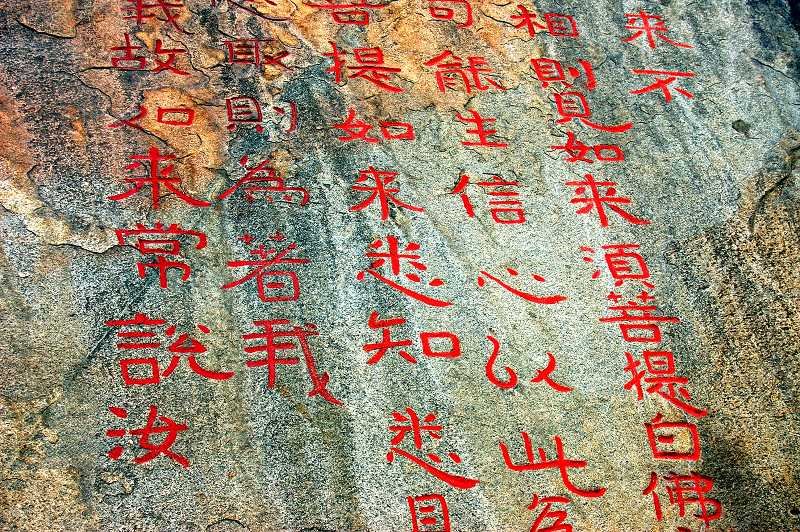 來不
相則見如來須菩提白佛
句能生信心以此為
菩提如來悉知悉見
心取則為著我
我故如來常說汝